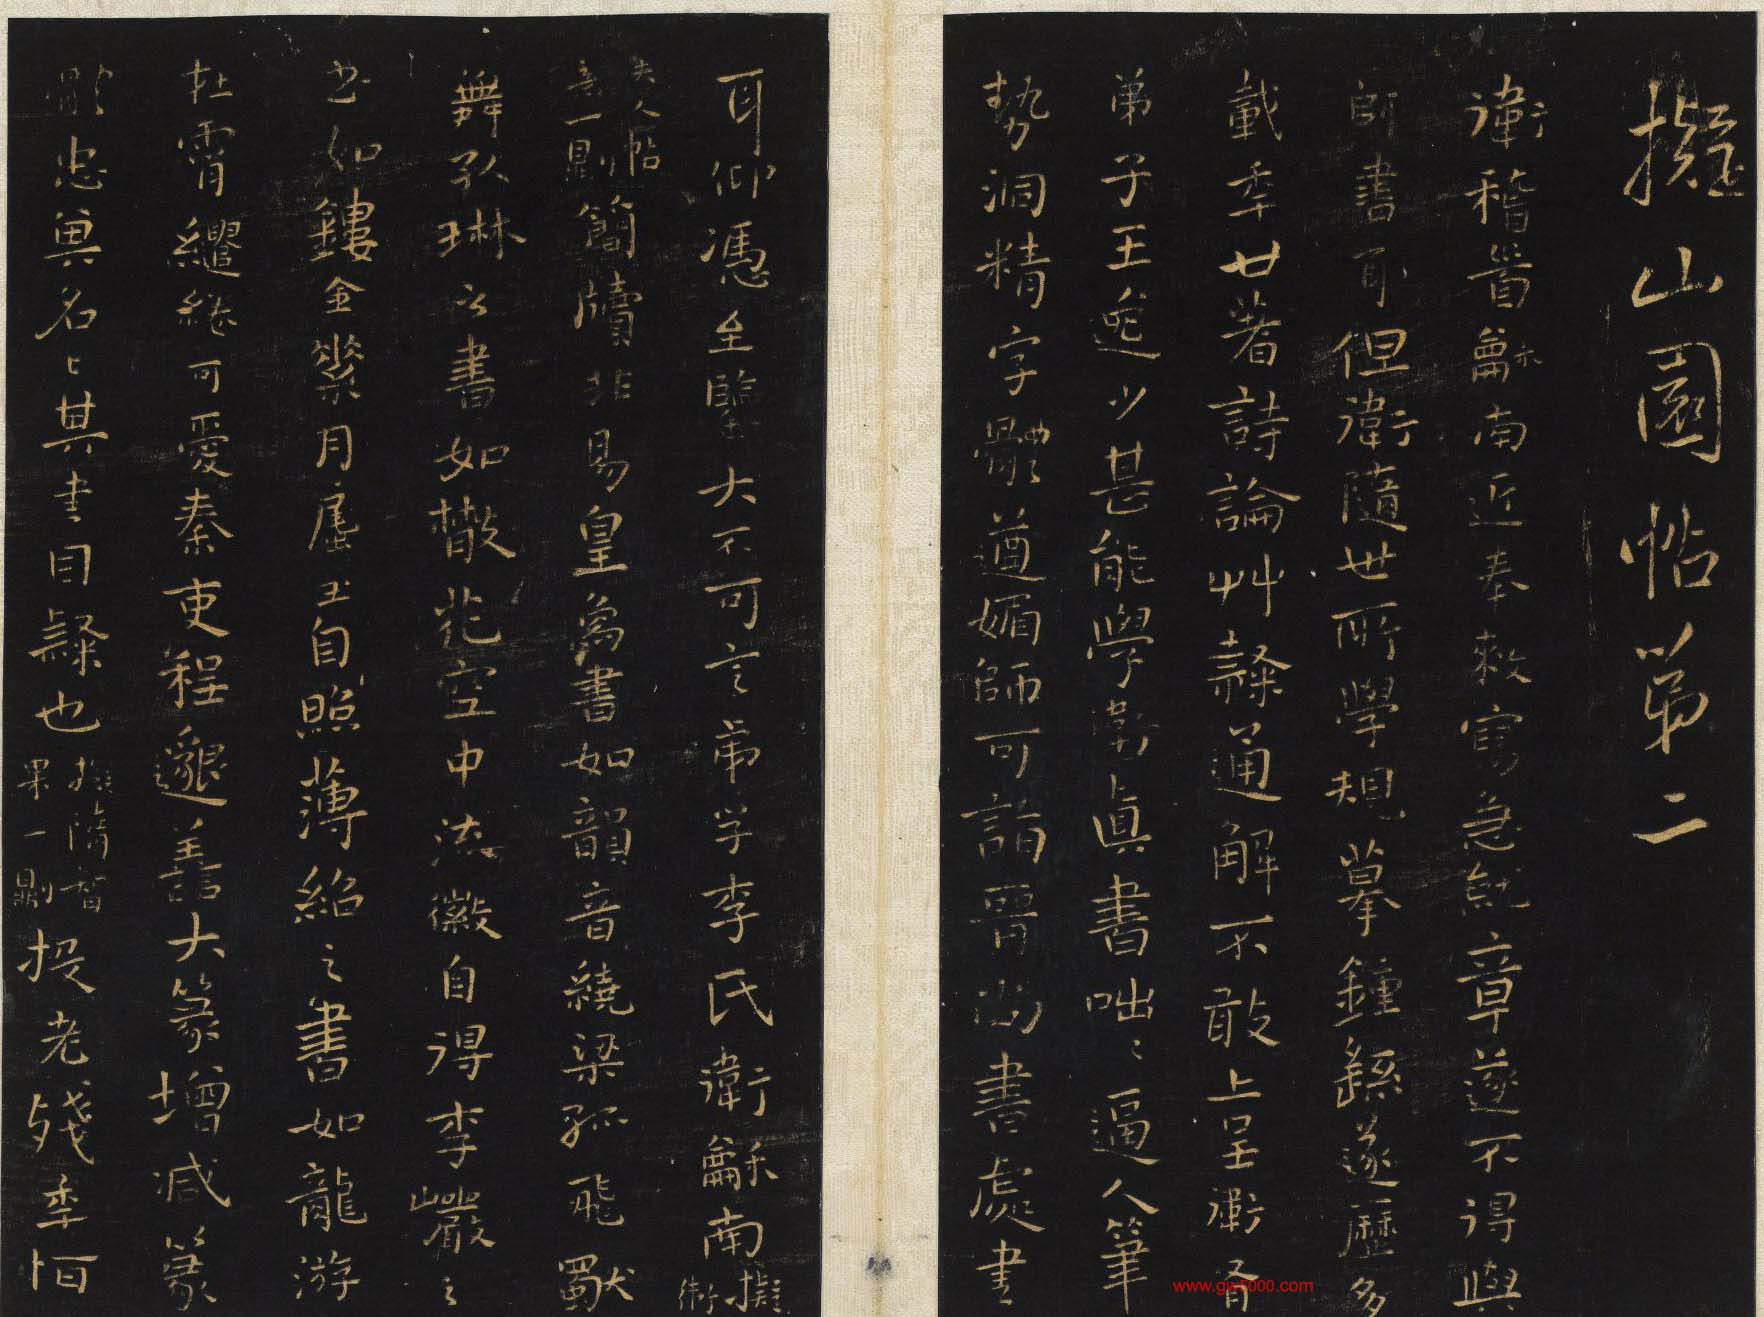 擬山園帖第二
衛稽首龢南近奉敕寫急就章遂不得與
師書耳但衛隨世所學規摹鍾繇遂歷多
載年廿著詩論艸隸通解不敢上呈衛有
弟子王逸少甚能學衛真書咄咄逼人筆
勢洞精字體遒媚師可詣晉尚書處書
耳仰憑至鑒大不可言弟子李氏衛龢南擬衛
夫人帖
一則簡牘非易皇象書如韻音繞梁孤飛獸
舞孔琳之書如散花空中流徽自得李巖之
書如鏤金素月屈玉自照薄紹之書如龍游
在霄繾綣可愛秦吏程邈善大篆增減篆
體忠其名其書曰隸也擬隋智
果一則投老殘年恒
www.gw5000.com